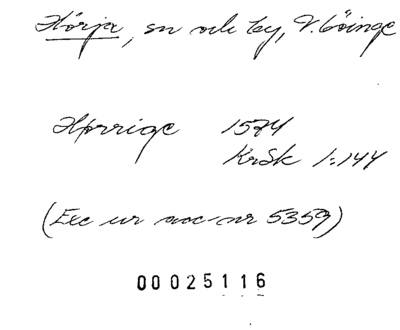 Hörja, sn och by, V. Göinge
Hørrige 1574
KrSk 1:144
(Exc ur acc-nr 5359)
00025116